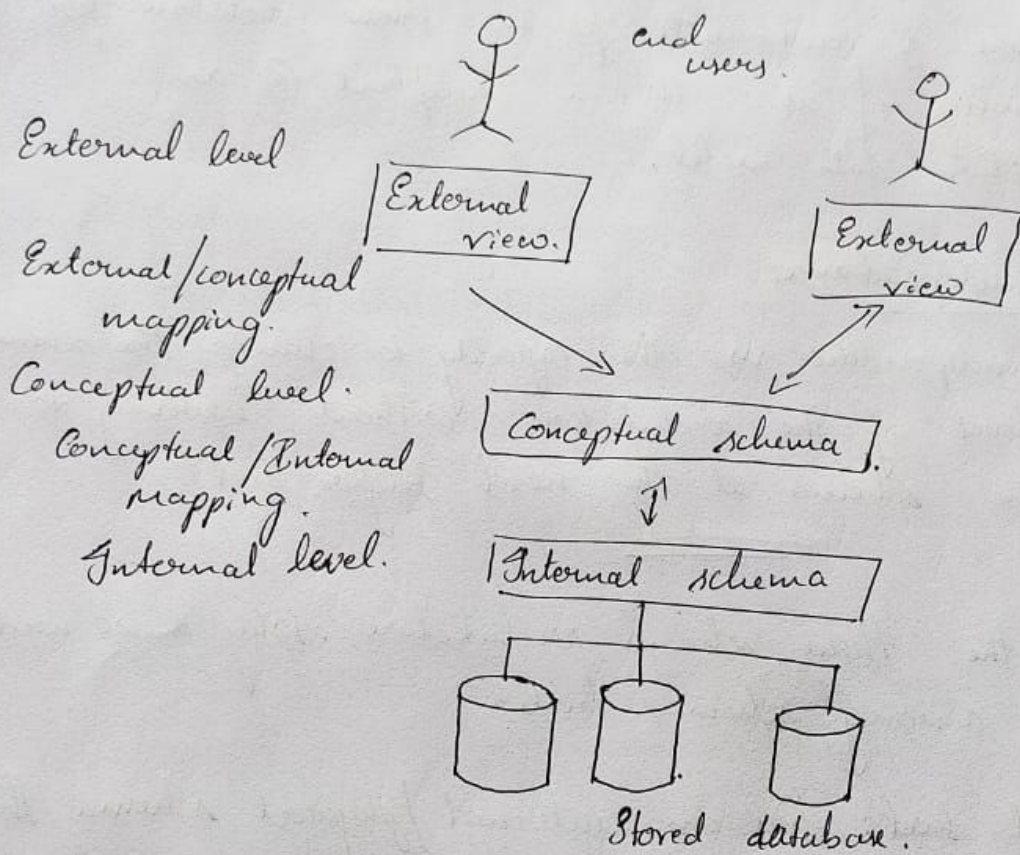 end
users.
External level
External
view.
External
view
External/conceptual
mapping.
Conceptual level.
Conceptual schema
Conceptual/Internal
mapping.
Internal level.
Internal schema
Stored database.